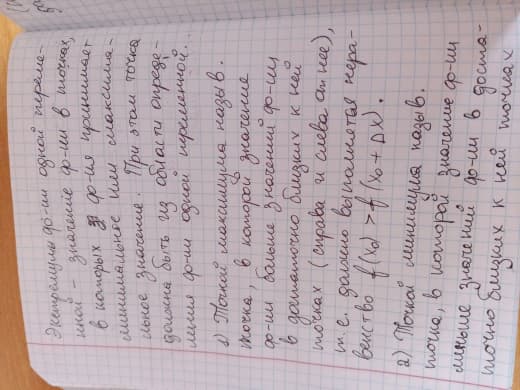 Экстремумы ф-ии одной переме-
нной - значение ф-ии в точках,
в которых ф-ия принимает
минимальное или максима-
льное значение. При этом точка
должна быть из области опреде-
ления ф-ии одной переменной...
1) Точкой максимума назыв.
точка, в которой значение
ф-ии больше значений ф-ии
в достаточно близких к ней
точках (справа и слева от нее),
т.е. должно выполняется нера-
венство f(x₀) > f(x₀ + Δx).
2) Точкой минимума назыв.
точка, в которой значение ф-ии
меньше значений ф-ии в доста-
точно близких к ней точках